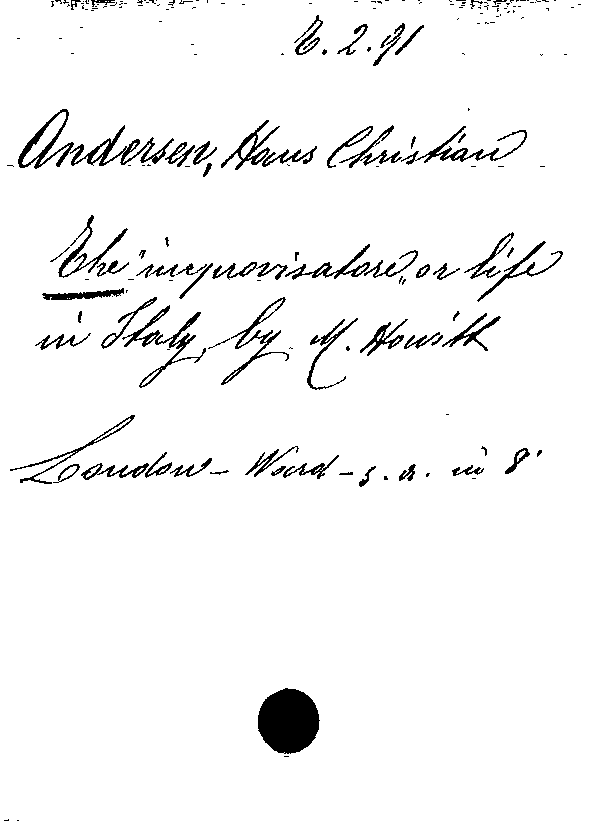 E. 2. 91
Andersen, Hans Christian
The "improvisatore" or life
in Italy, by M. Howitt
London - Ward - s. a. in 8°